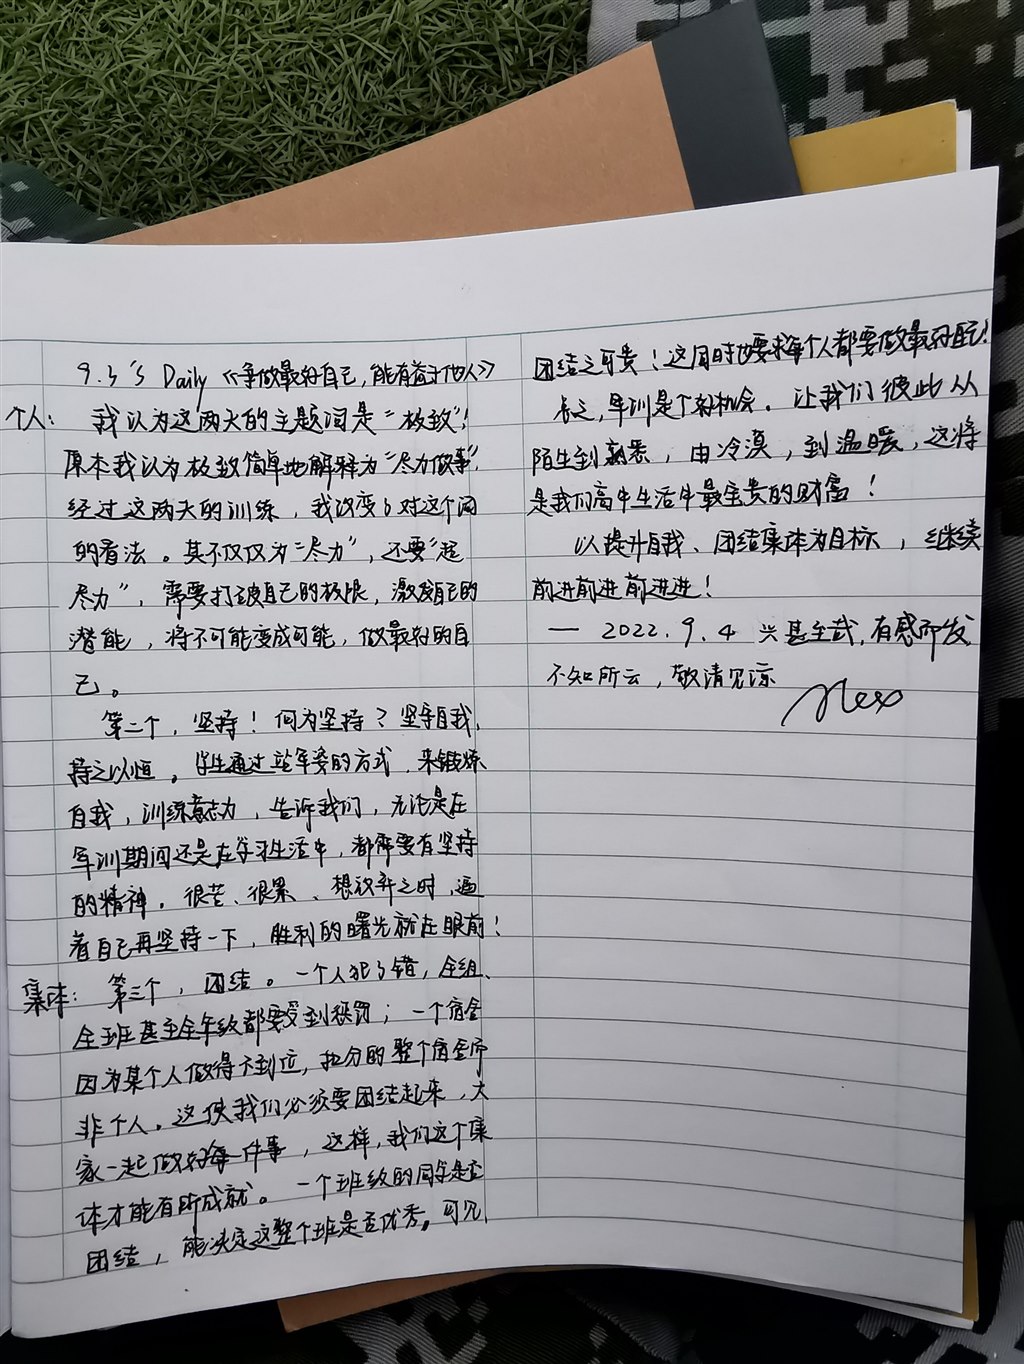 9.3's Daily 《争做最好自己，能有益于他人》
个人： 我认为这两天的主题词是“极致”！
原本我认为极致简单地解释为“尽力做事”，
经过这两天的训练，我改变了对这个词
的看法。其不仅仅为“尽力”，还要“超
尽力”，需要打破自己的极限，激发自己的
潜能，将不可能变成可能，做最好的自
己。
第二个，坚持！何为坚持？坚守自我，
持之以恒。学生通过站军姿的方式，来锻炼
自我，训练意志力，告诉我们，无论是在
军训期间还是在学习生活中，都需要有坚持
的精神。很苦、很累、想放弃之时，逼
着自己再坚持一下，胜利的曙光就在眼前！
集体： 第三个，团结。一个人犯了错，全组、
全班甚至全年级都要受到惩罚；一个宿舍
因为某个人做得不到位，扣分的整个宿舍而
非个人。这使我们必须要团结起来，大
家一起做好每一件事，这样，我们这个集
体才能有所成就。一个班级的同学是否
团结，能决定这整个班是否优秀。可见，
团结之可贵！这同时也要求每个人都要做最好自己！
总之，军训是个好机会。让我们彼此从
陌生到熟悉，由冷漠，到温暖，这将
是我们高中生活中最宝贵的财富！
以提升自我、团结集体为目标，继续
前进前进前进进！
— 2022.9.4 兴甚至哉，有感而发
不知所云，敬请见谅
Alex